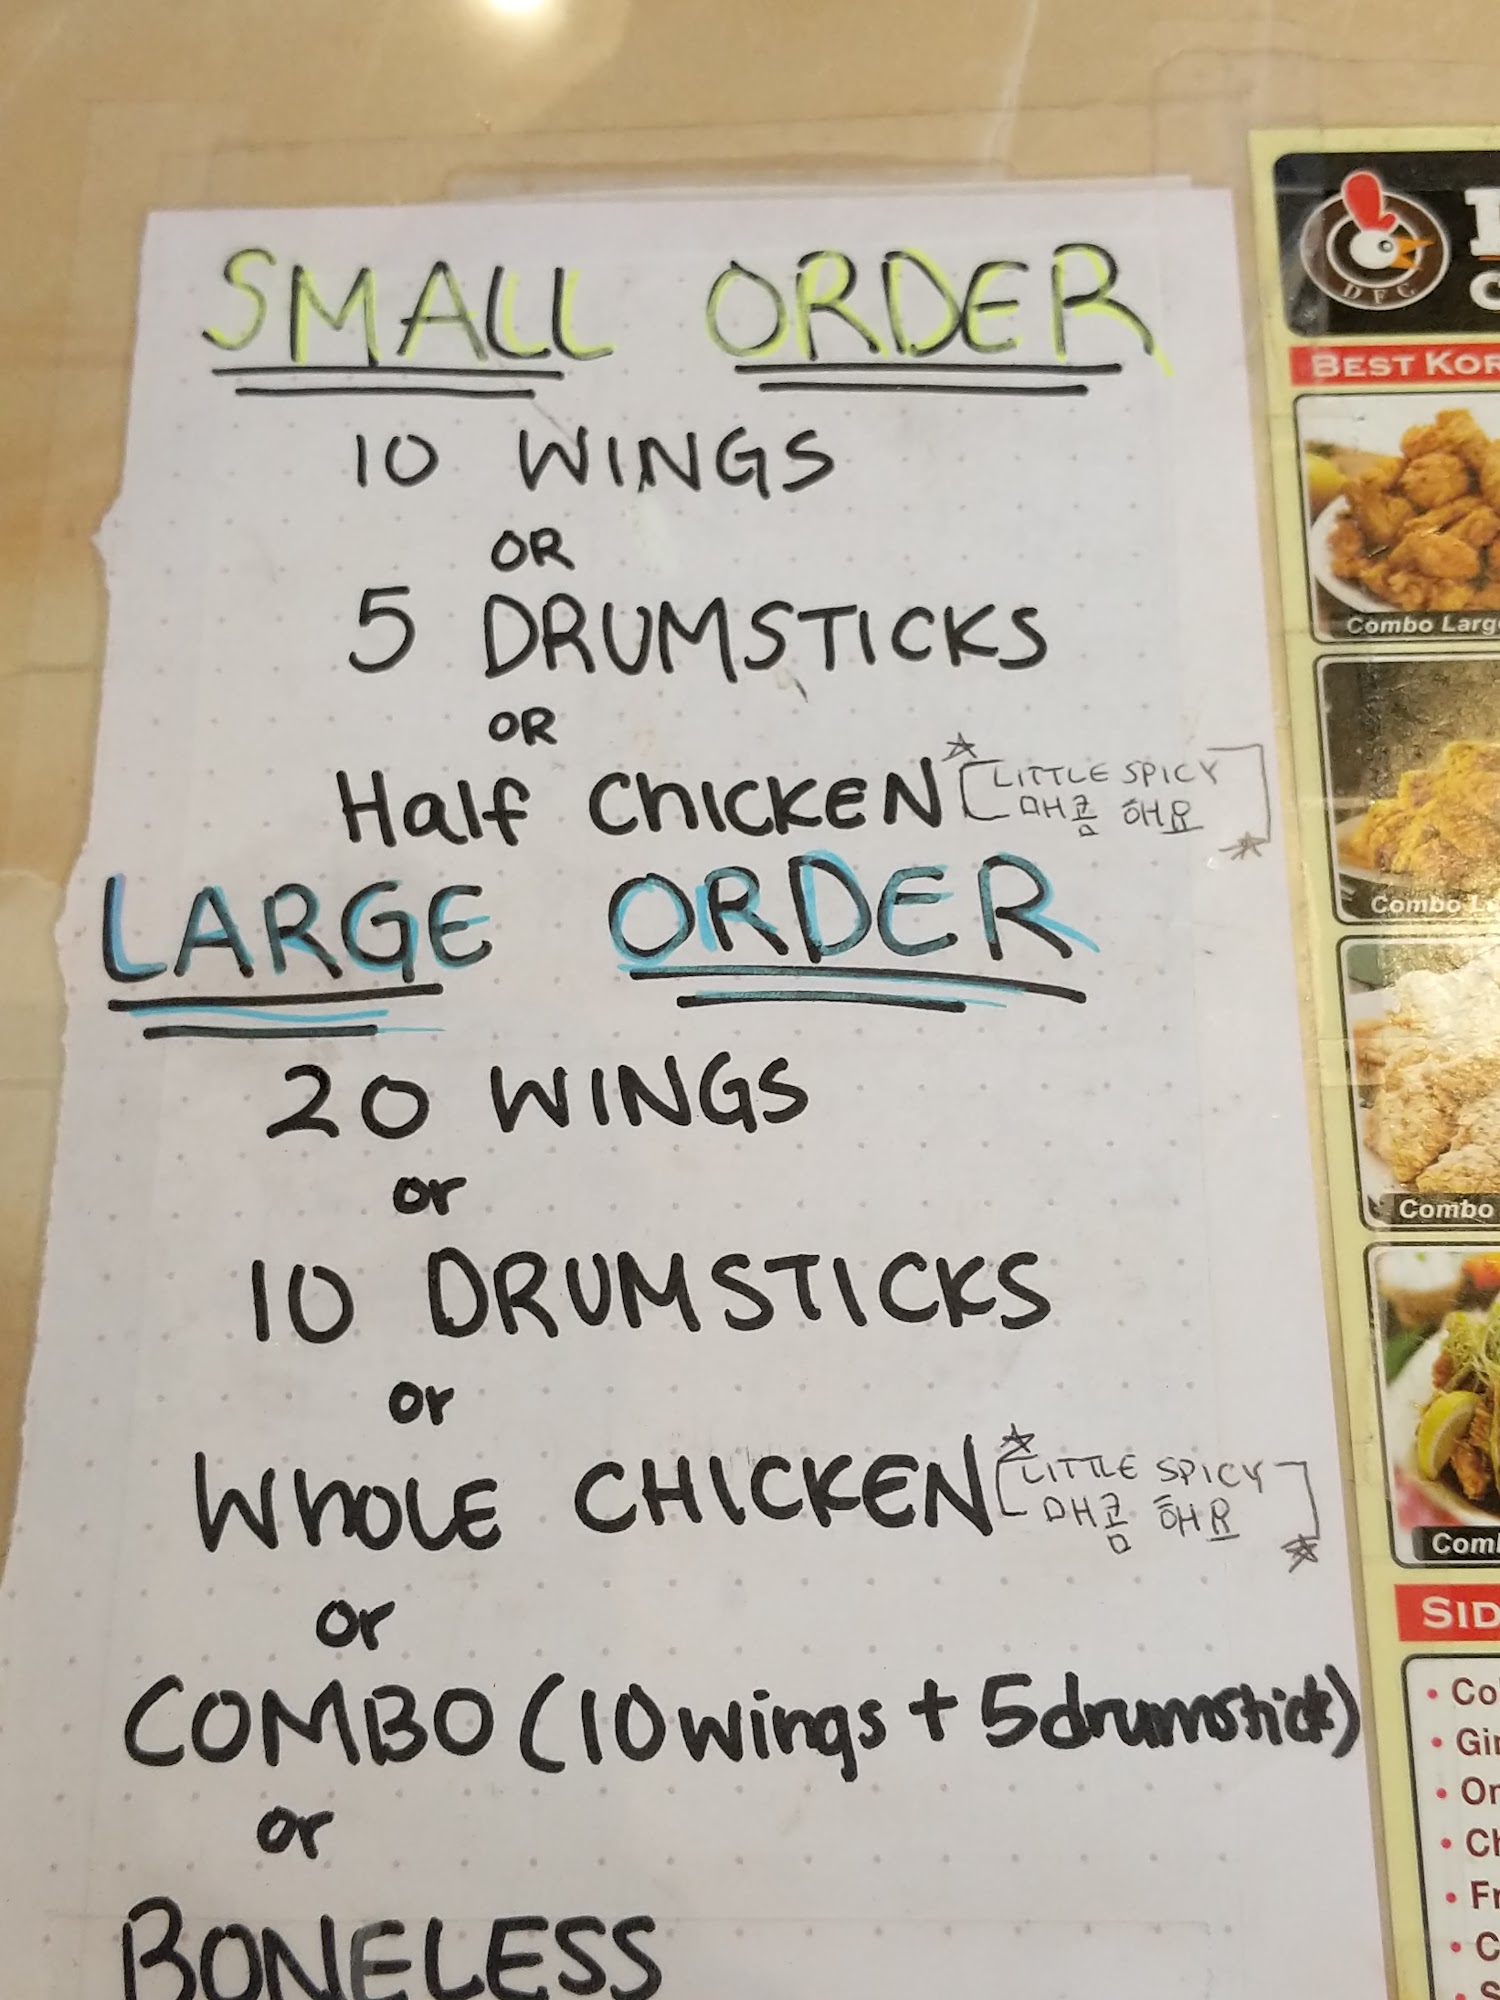 SMALL ORDER
10 WINGS
OR
5 DRUMSTICKS
OR
Half CHICKEN
LITTLE SPICY
매콤 해요
LARGE ORDER
20 WINGS
or
10 DRUMSTICKS
or
WHOLE CHICKEN
LITTLE SPICY
매콤 해요
or
COMBO (10 wings + 5 drumstick)
or
BONELESS
DFC
BEST KOR
Combo Larg
Combo L
Combo
Com
SID
• Co
• Gi
• Or
• Ch
• Fr
• C
• S